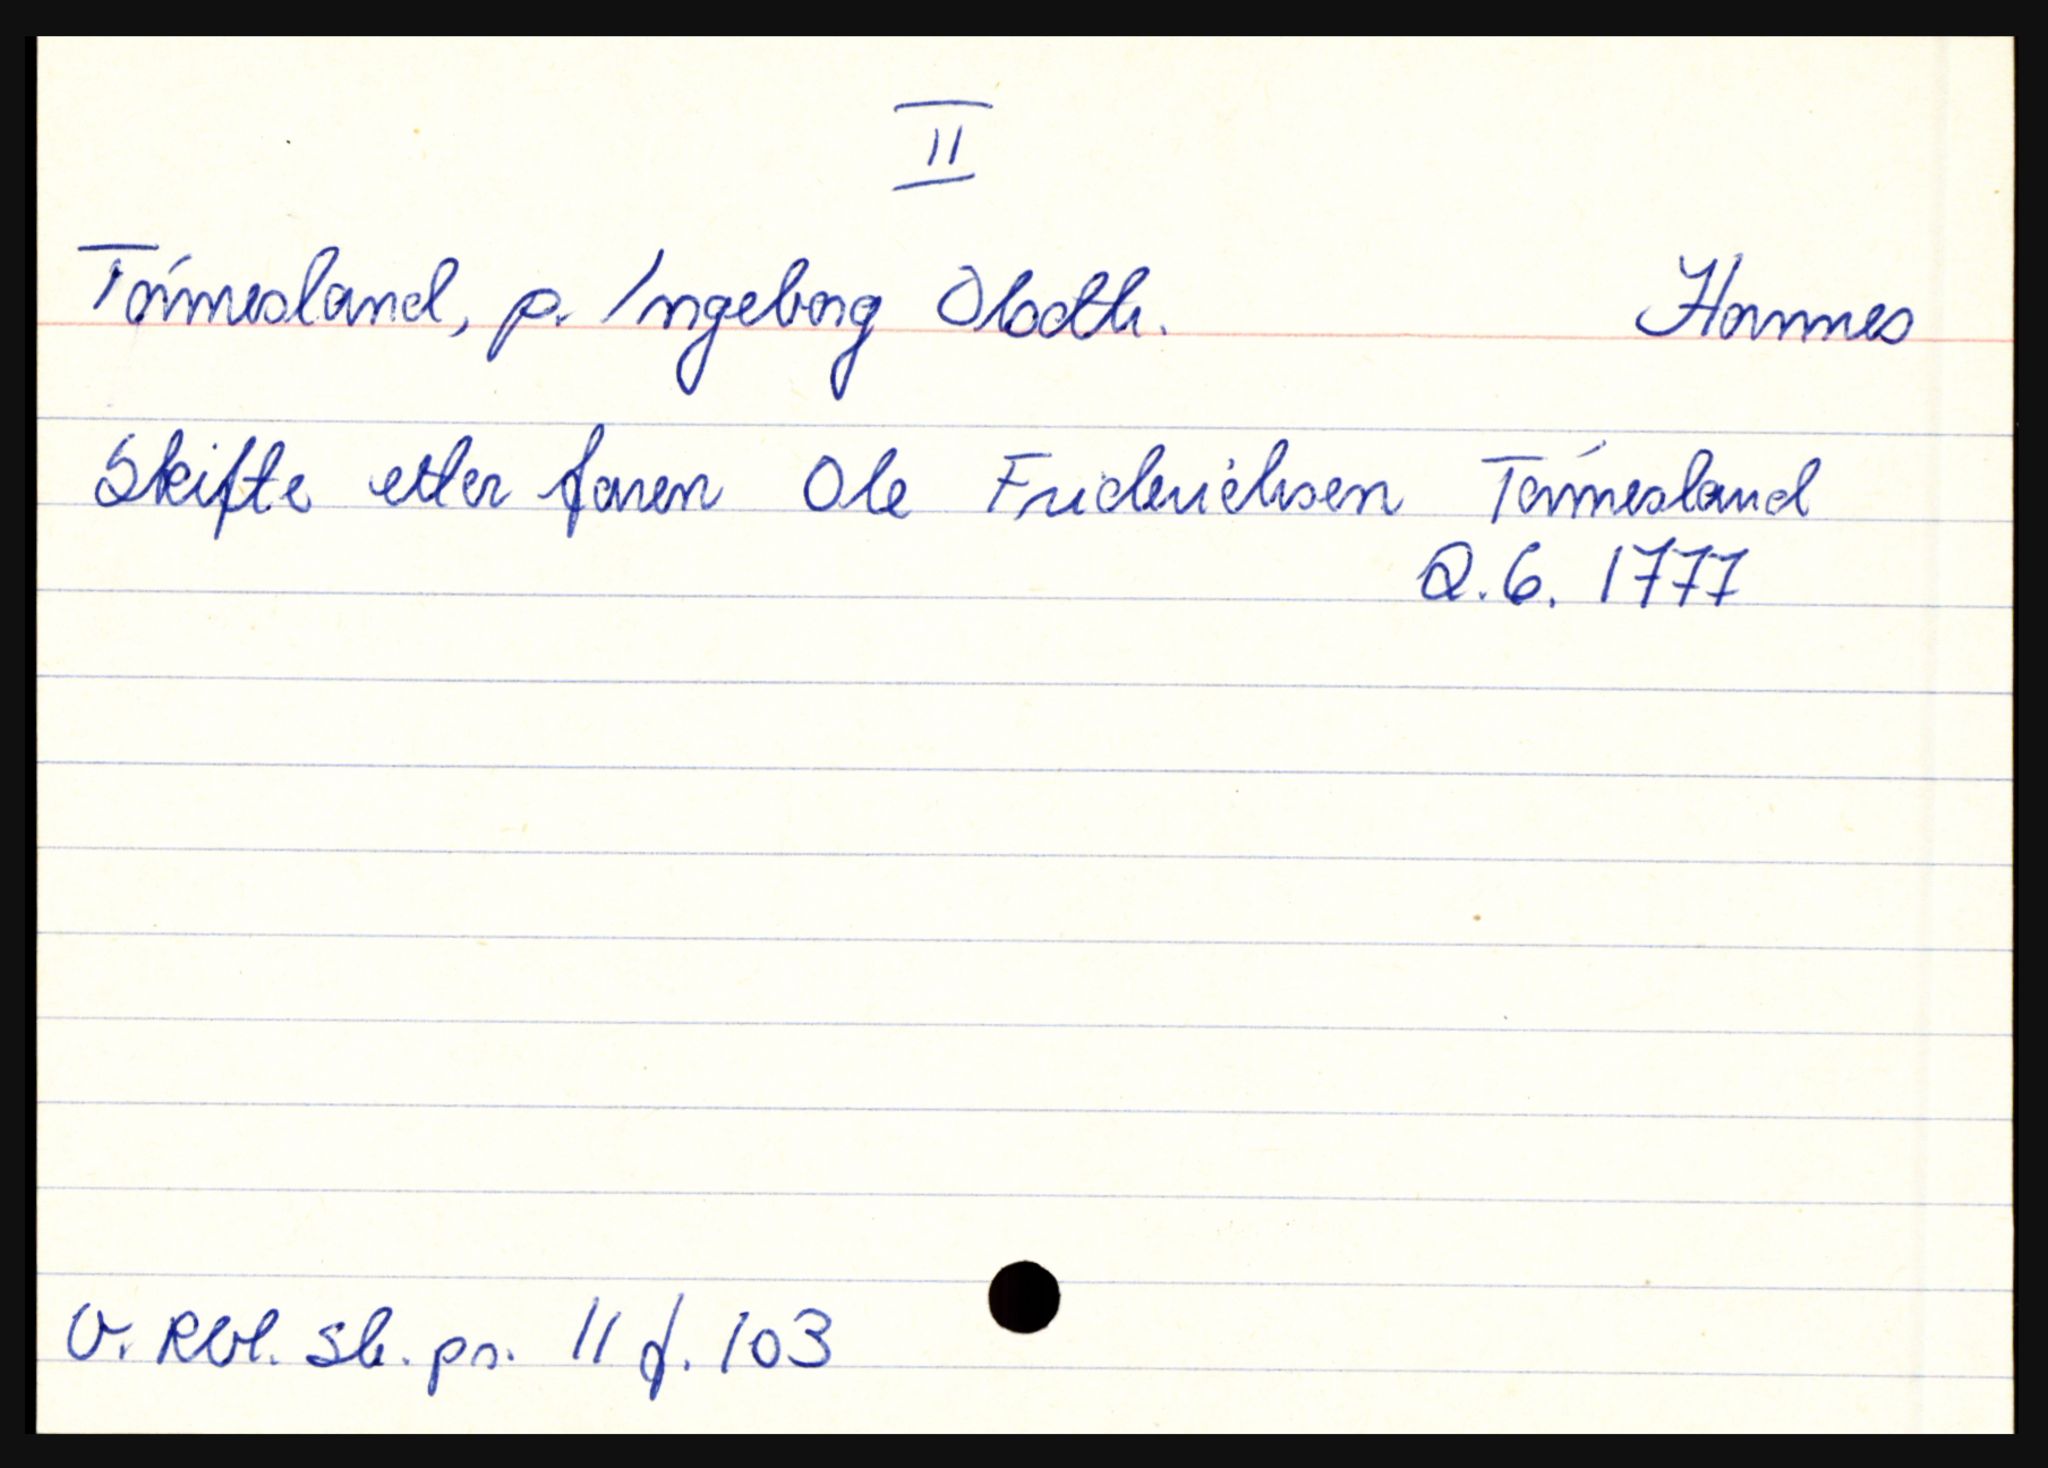 II
Tónnesland, p. Ingeborg Olsdtr. Hornnes
Skifte etter faren Ole Friderichsen Tónnesland
2.6. 1777
V. Rbl. Sk. pr. 11 f. 103